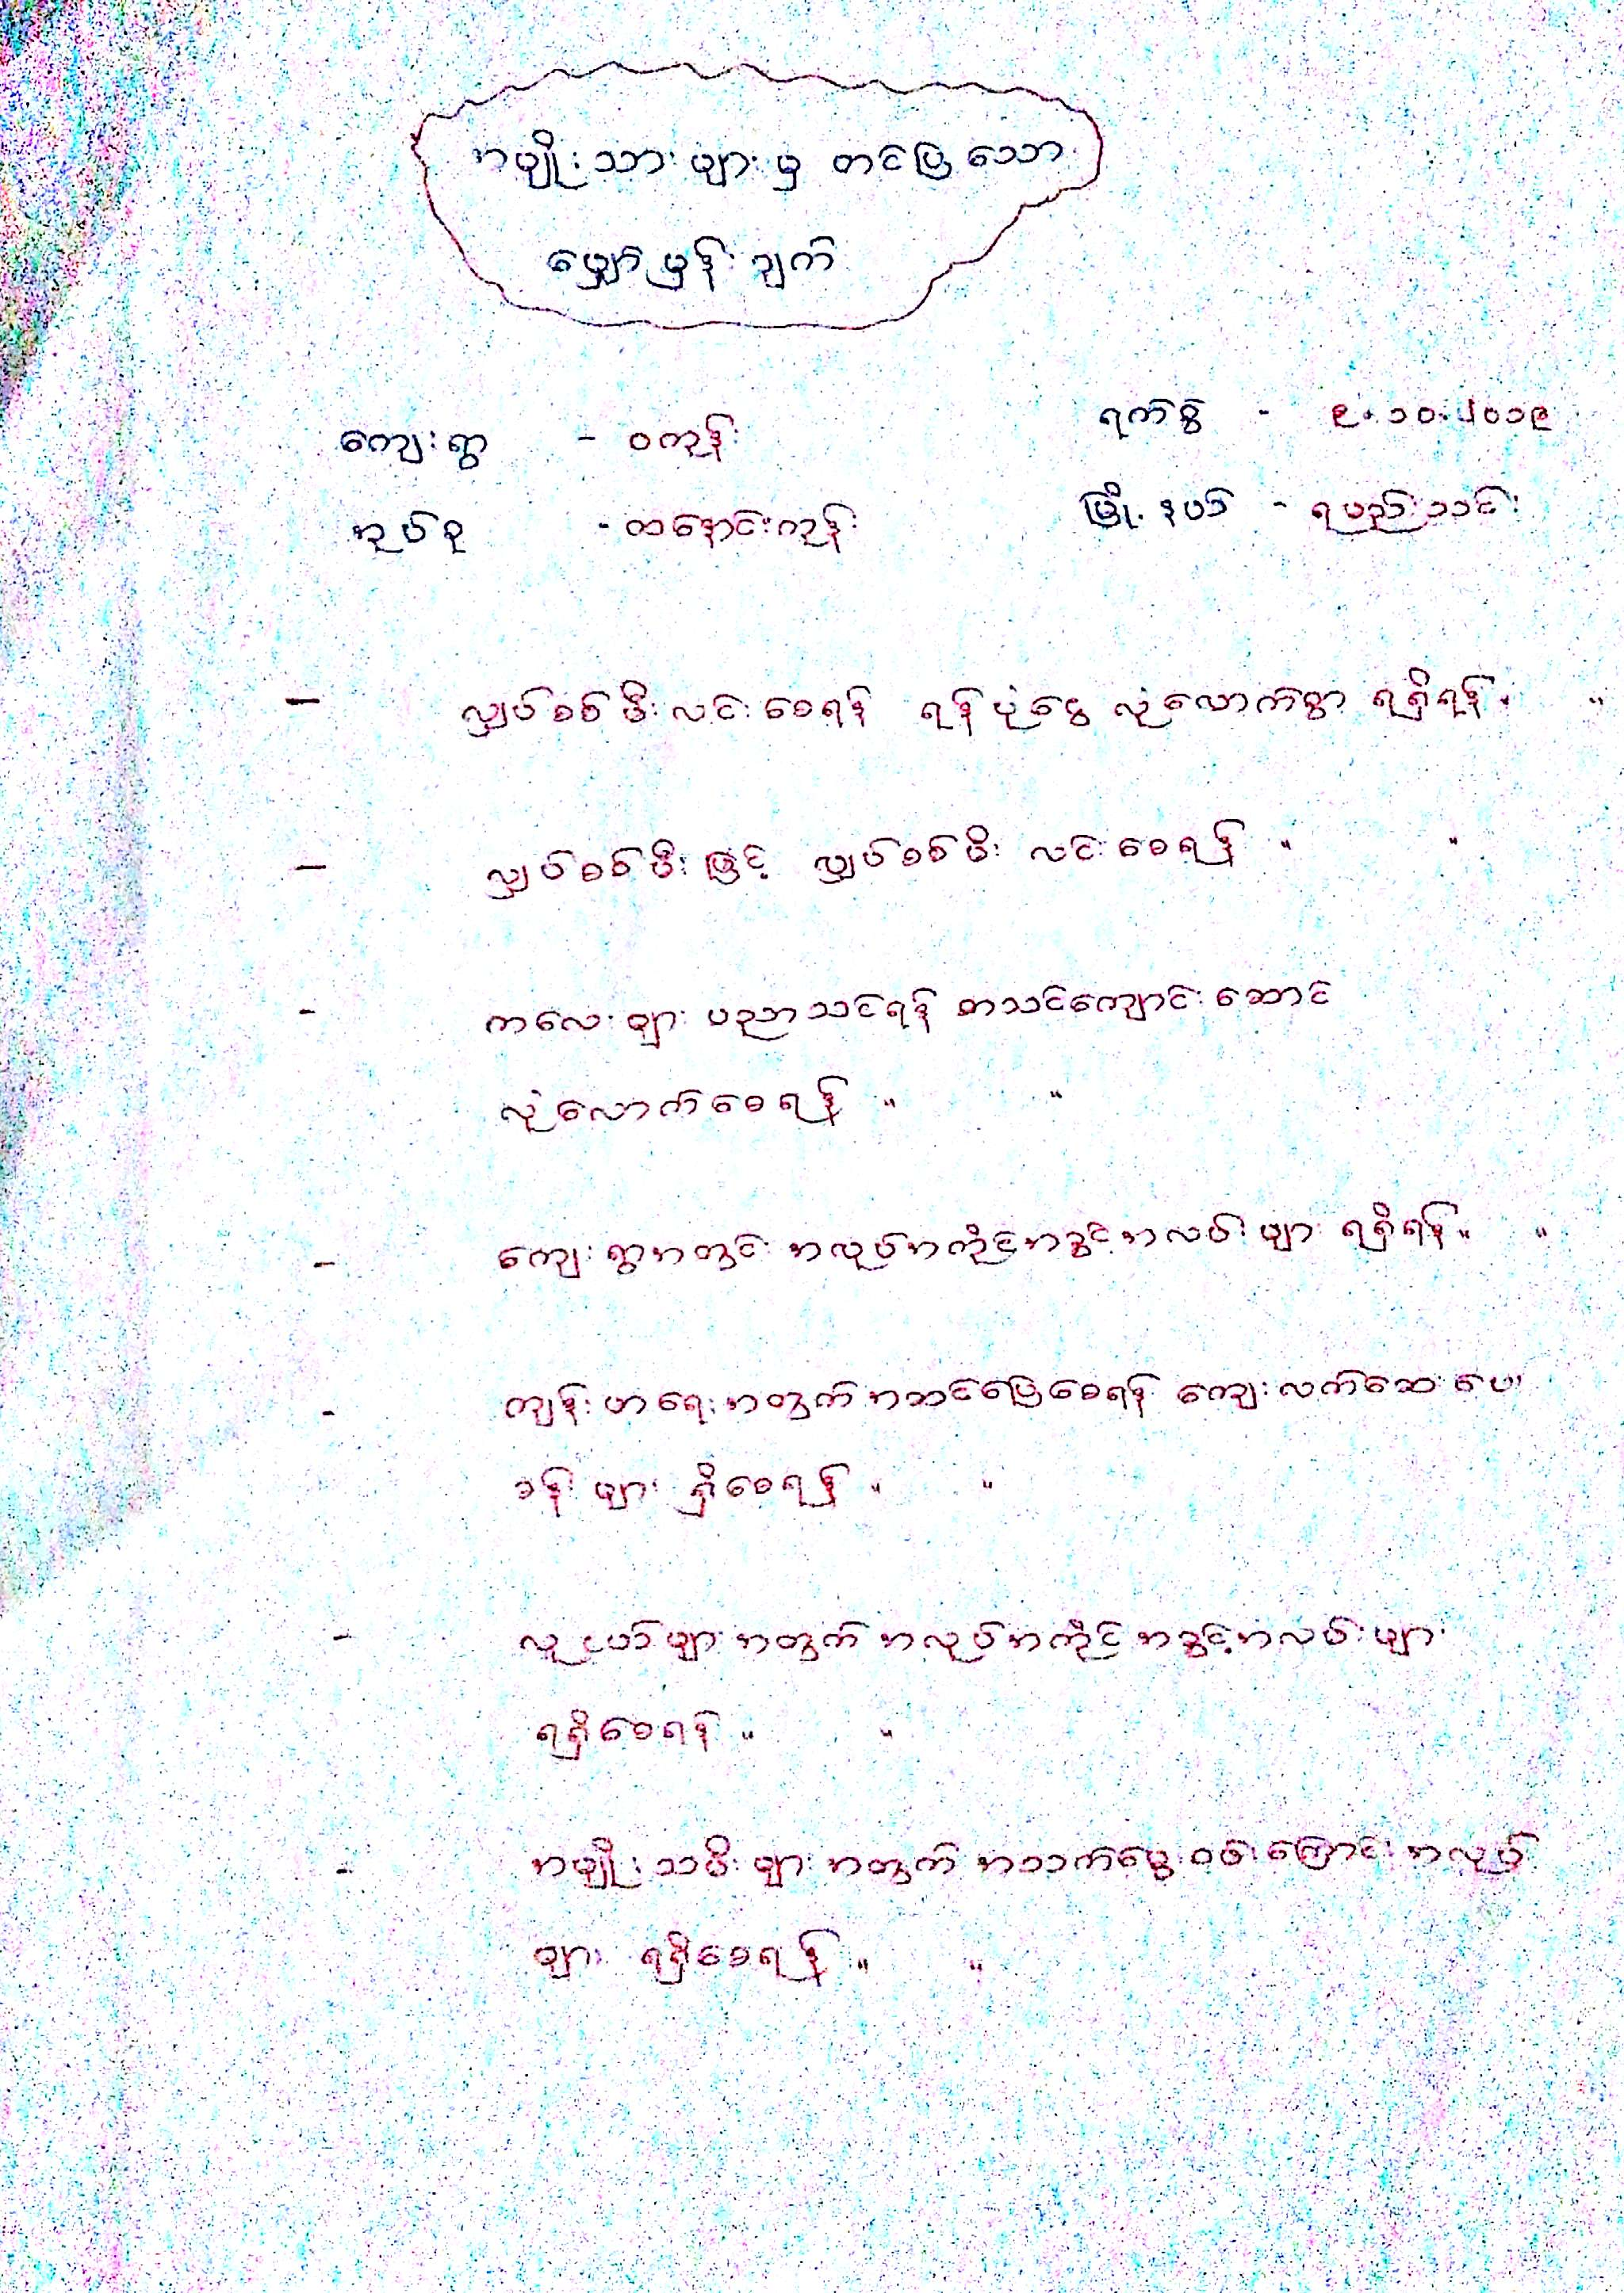 အမျိုးသားများမှ တင်ပြသော
မျှော်မှန်းချက်
ရက်စွဲ - ၉.၁၀.၂၀၁၉
ကျေးရွာ - ဝကုန်း
မြို့နယ် - ရမည်းသင်း
အုပ်စု - တနောင်းကုန်း
- လျှပ်စစ်မီးလင်းစေရန် ရန်ပုံငွေ လုံလောက်စွာ ရရှိရန်။ ။
- လျှပ်စစ်မီးဖြင့် လျှပ်စစ်မီး လင်းစေရန် ။ ။
- ကလေးများ ပညာသင်ရန် စာသင်ကျောင်းဆောင်
လုံလောက်စေရန် ။ ။
- ကျေးရွာအတွင်း အလုပ်အကိုင်အခွင့်အလမ်းများ ရရှိရန်။ ။
- ကျန်းမာရေးအတွက် အဆင်ပြေစေရန် ကျေးလက်ဆေးပေး
ခန်းများ ရှိစေရန် ။ ။
- လူငယ်များအတွက် အလုပ်အကိုင် အခွင့်အလမ်းများ
ရရှိစေရန် ။ ။
- အမျိုးသမီးများအတွက် အသက်မွေးဝမ်းကြောင်းအလုပ်
များ ရရှိစေရန် ။ ။